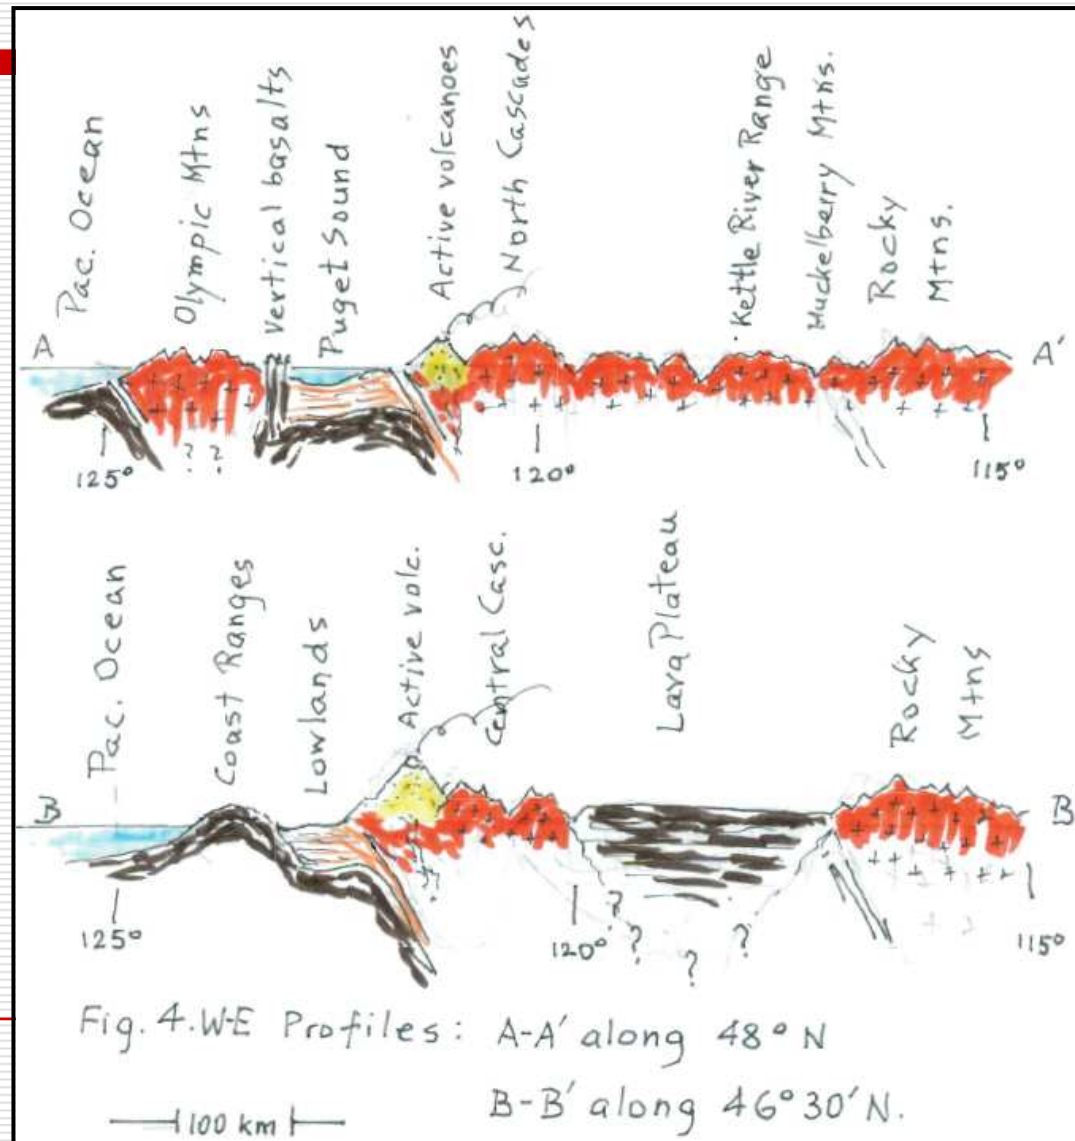 Pac. Ocean
Olympic Mtns
Vertical basalts
Puget Sound
Active volcanoes
North Cascades
Kettle River Range
Huckelberry Mtns.
Rocky
Mtns.
A
A'
? ?
125°
120°
115°
Pac. Ocean
Coast Ranges
Lowlands
Active volc.
Central Casc.
Lava Plateau
Rocky
Mtns
B
B
125°
120°
? ? ? ?
115°
Fig. 4. W-E Profiles: A-A' along 48° N
B-B' along 46° 30' N.
100 km